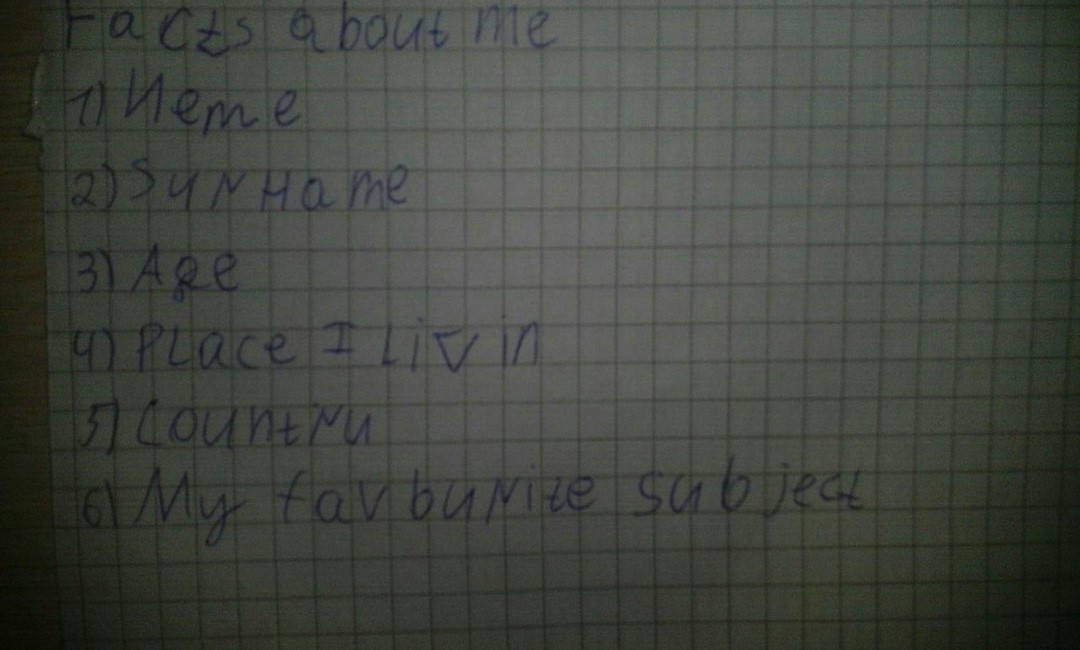 Facts about me
1) Neme
2) Surname
3) Age
4) Place I Liv in
5) Countru
6) My favburite subject